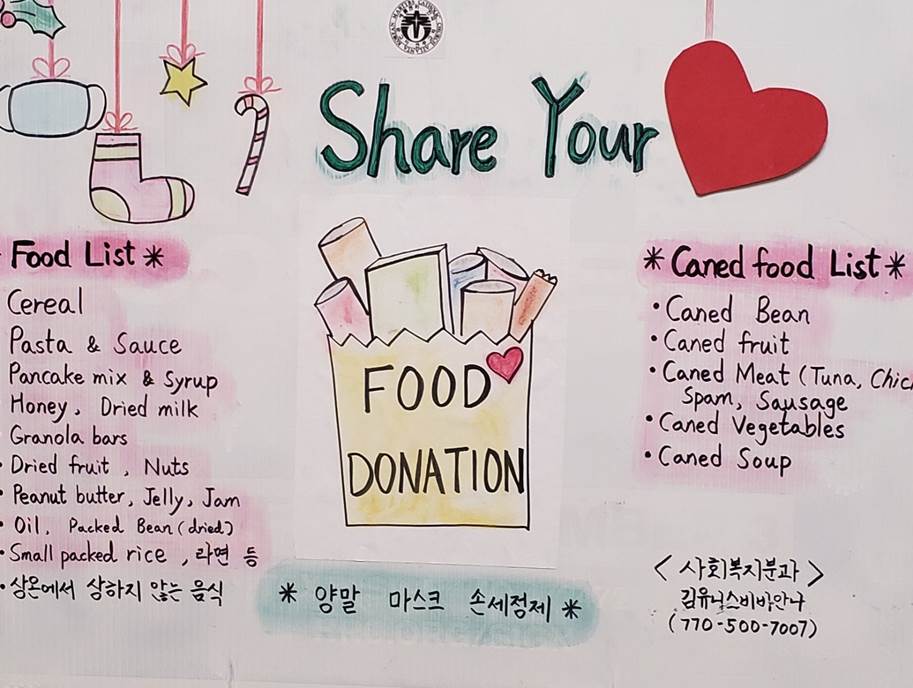 Share Your
* Food List *
Cereal
Pasta & Sauce
Pancake mix & Syrup
Honey, Dried milk
Granola bars
• Dried fruit, Nuts
• Peanut butter, Jelly, Jam
• Oil, Packed Bean (dried)
• Small packed rice, 라면 등
• 상온에서 상하지 않는 음식
FOOD
DONATION
* 양말 마스크 손세정제 *
* Caned food List *
• Caned Bean
• Caned fruit
• Caned Meat (Tuna, Chic
Spam, Sausage
• Caned Vegetables
• Caned Soup
<사회복지분과>
김유니스비비안나
(770-500-7007)